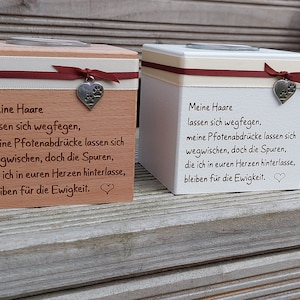 eine Haare
sen sich wegfegen,
ine Pfotenabdrücke lassen sich
gwischen, doch die Spuren,
ich in euren Herzen hinterlasse,
eiben für die Ewigkeit.
Meine Haare
lassen sich wegfegen,
meine Pfotenabdrücke lassen sich
wegwischen, doch die Spuren,
die ich in euren Herzen hinterlasse,
bleiben für die Ewigkeit.